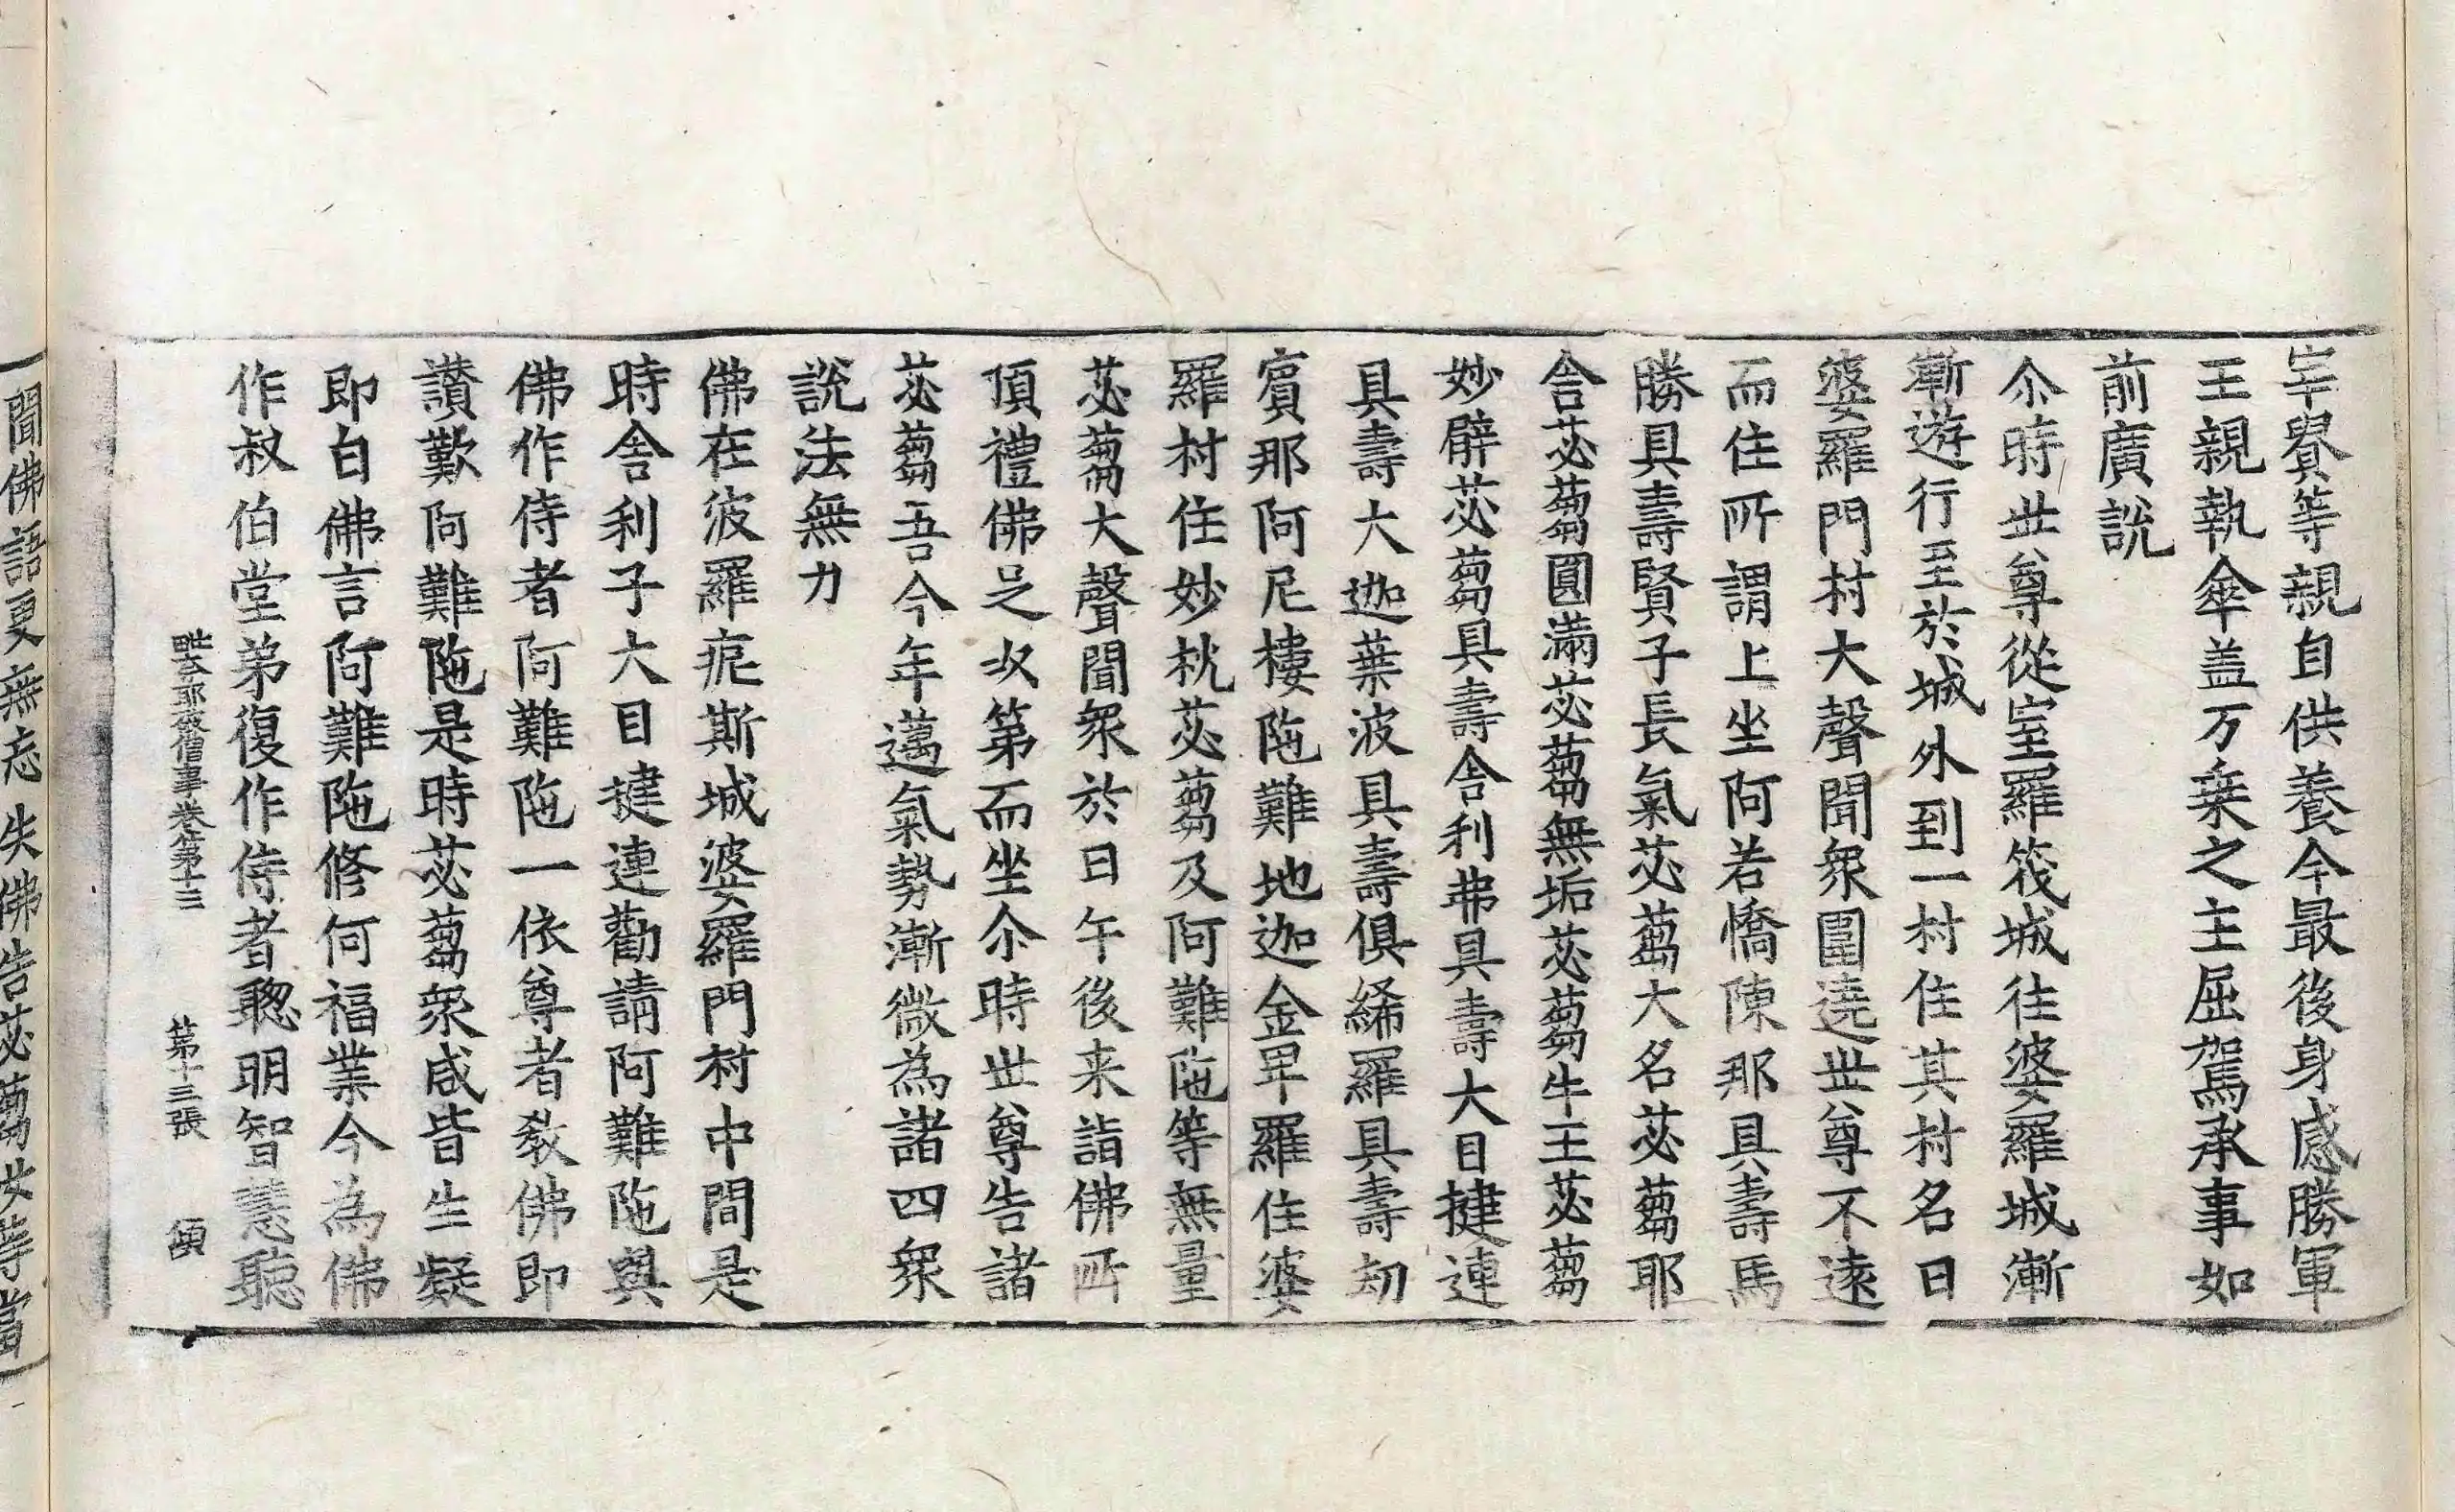 宰㝵等親自供養今最後身感勝軍
王親執傘盖万乗之主屈駕承事如
前廣說
尒時世尊從室羅筏城往婆羅城漸
漸遊行至於城外到一村住其村名曰
婆羅門村大聲聞衆圍遶世尊不遠
而住所謂上坐阿若憍陳那具壽馬
勝具壽賢子長氣苾蒭大名苾蒭耶
舍苾蒭圓滿苾蒭無垢苾蒭牛王苾蒭
妙臂苾蒭具壽舍利弗具壽大目揵連
具壽大迦葉波具壽俱絺羅具壽劫
賔那阿尼樓陁難地迦金毗羅住婆
羅村住妙枕苾蒭及阿難陁等無量
苾蒭大聲聞衆於日午後来詣佛所
頂禮佛足次第而坐尒時世尊告諸
苾蒭吾今年邁氣勢漸微為諸四衆
說法無力
佛在波羅痆斯城婆羅門村中間是
時舍利子大目揵連勸請阿難陁與
佛作侍者阿難陁一依尊者教佛即
讃歎阿難陁是時苾蒭衆咸皆生疑
即白佛言阿難陁修何福業今為佛
作叔伯堂弟復作侍者聦明智慧聽
毗奈耶破僧事卷第十三 第十三張
聞佛語更無忘失佛告苾蒭汝等當